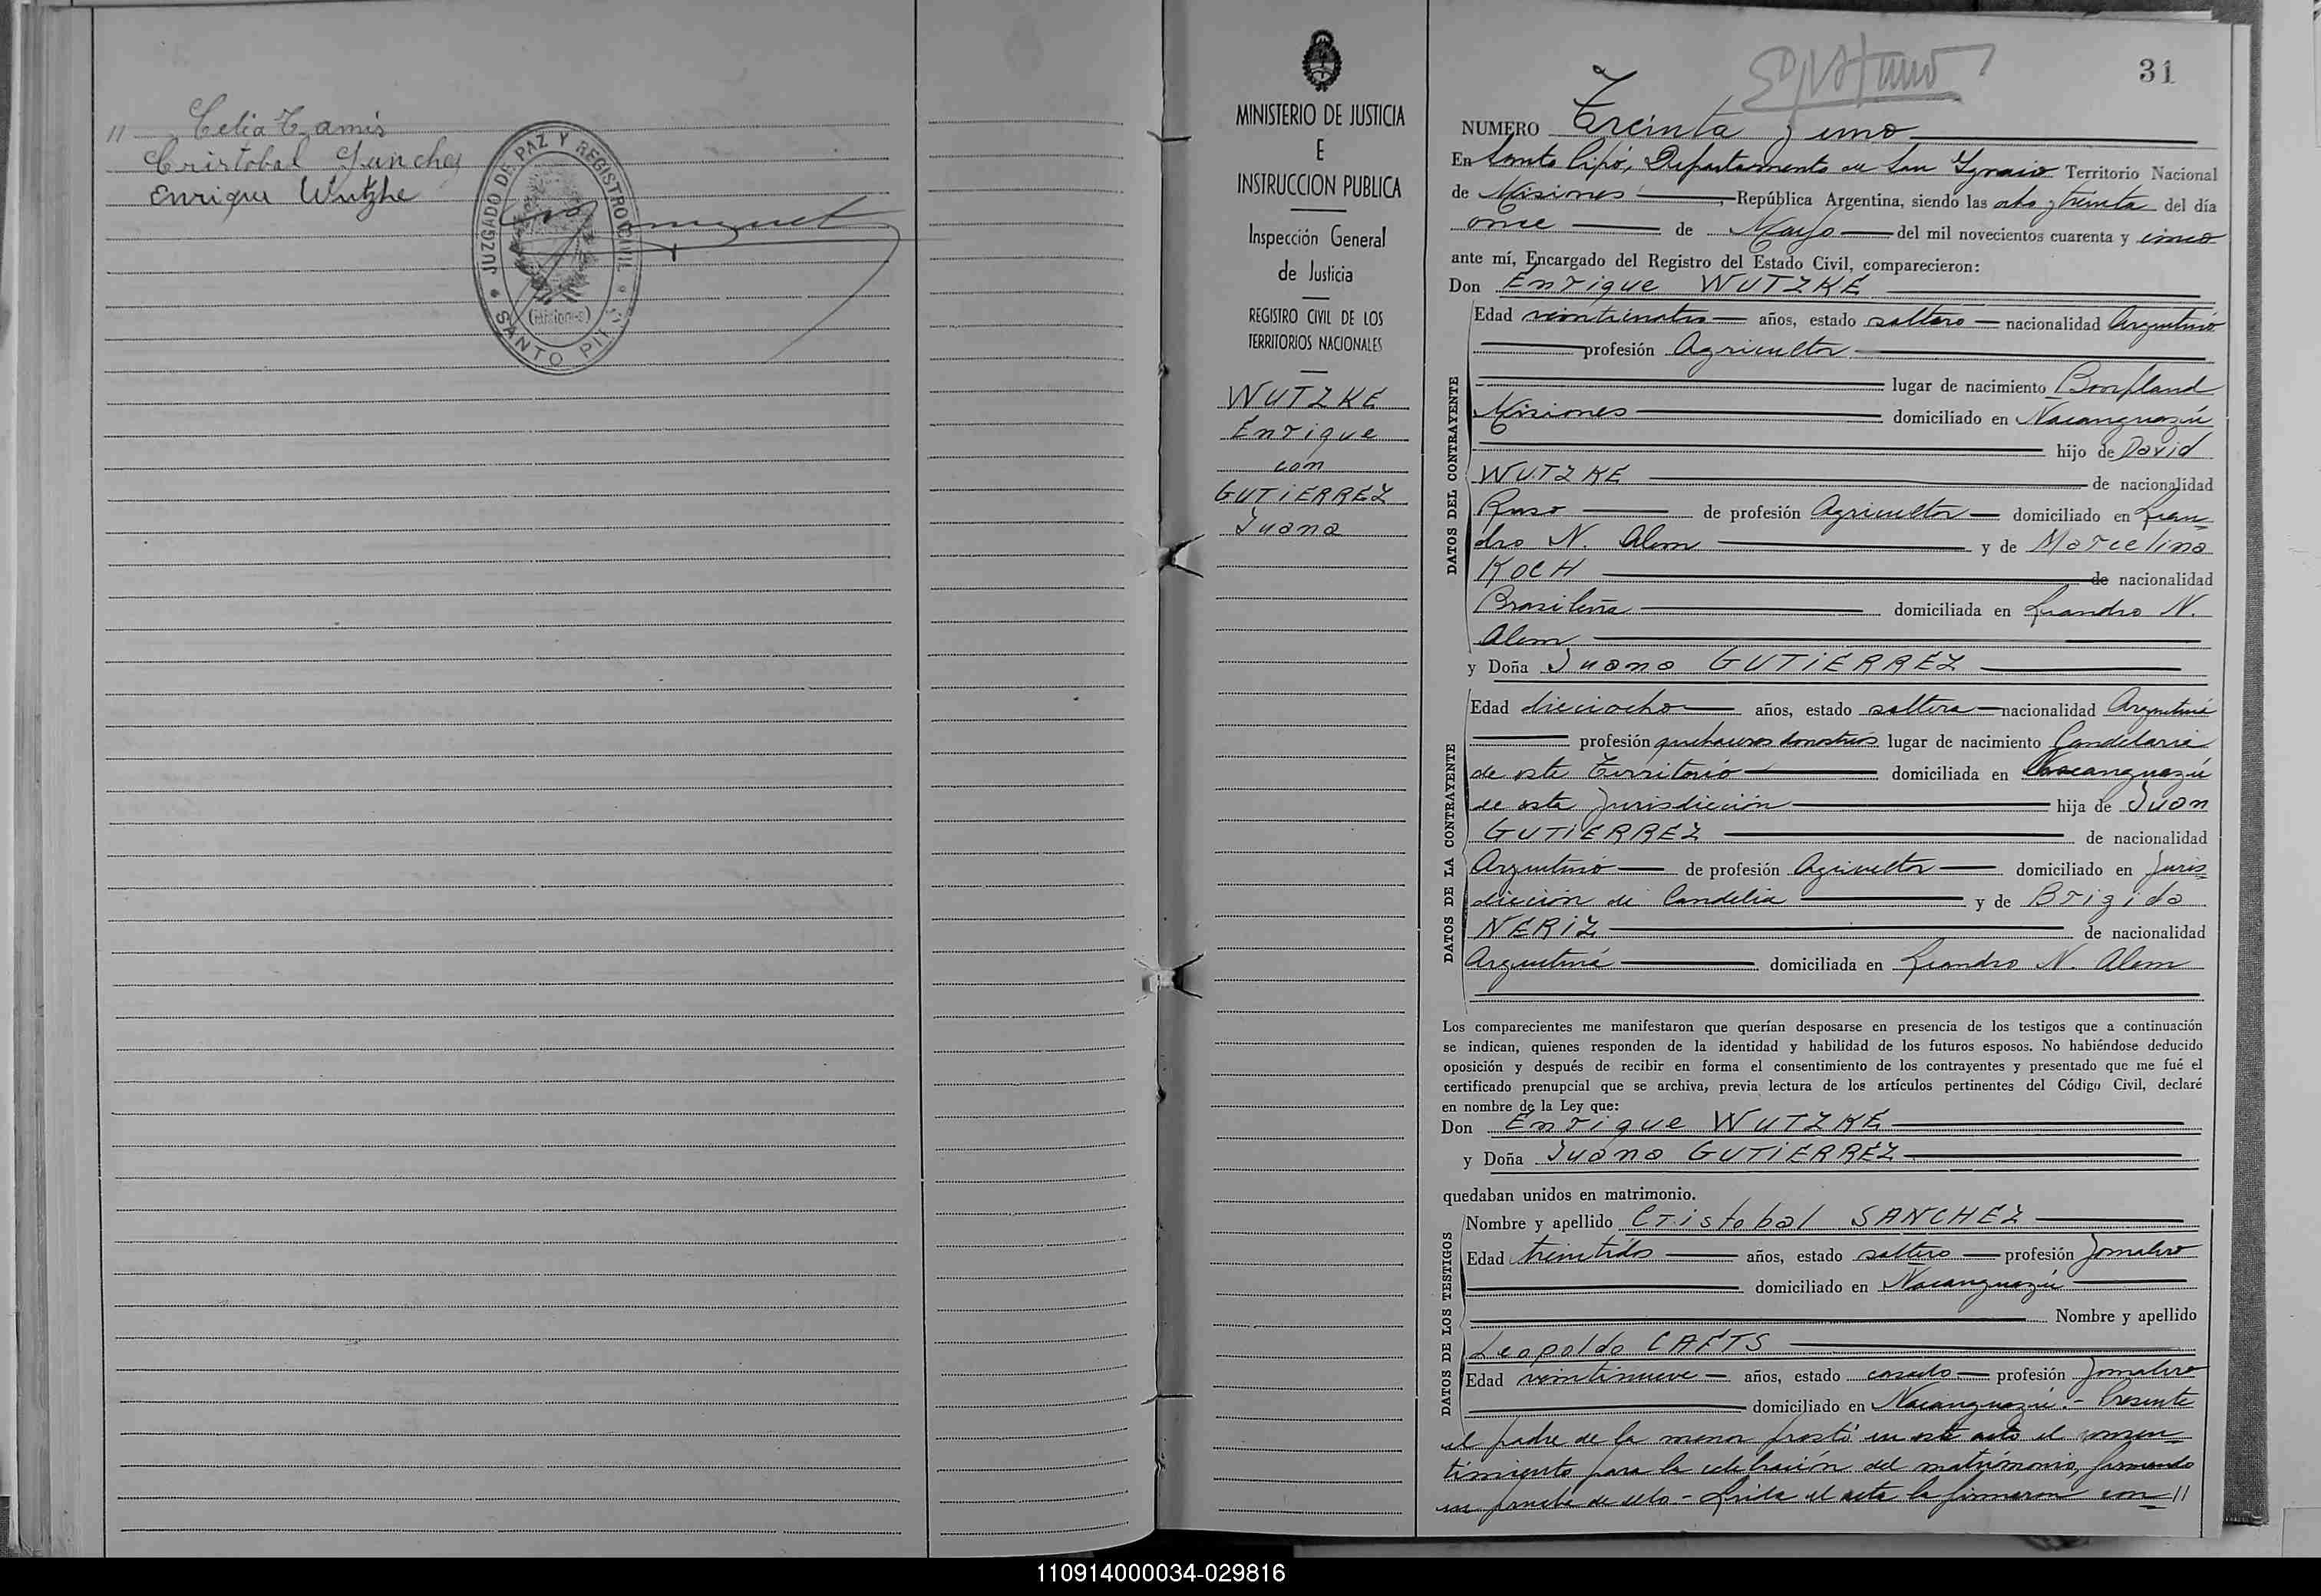 11 Celia Tamis
Cristobal Sanchez
Enrique Wutzke
JUZGADO DE PAZ Y REGISTRO CIVIL
(Misiones)
SANTO PIPÓ
MINISTERIO DE JUSTICIA
E
INSTRUCCION PUBLICA
Inspección General
de Justicia
REGISTRO CIVIL DE LOS
TERRITORIOS NACIONALES
WUTZKE
Enrique
con
GUTIERREZ
Juana
31
NUMERO Treinta y uno
En Santo Pipó, Departamento de San Ignacio Territorio Nacional
de Misiones, República Argentina, siendo las ocho y treinta del día
once de Mayo del mil novecientos cuarenta y cinco
ante mí, Encargado del Registro del Estado Civil, comparecieron:
Don Enrique WUTZKE
DATOS DEL CONTRAYENTE
Edad veinticuatro años, estado soltero nacionalidad Argentino
profesión Agricultor
lugar de nacimiento Bonpland
Misiones domiciliado en Ñacanguazú
hijo de David
WUTZKE de nacionalidad
Ruso de profesión Agricultor domiciliado en Lean-
dro N. Alem y de Marcelina
KOCH de nacionalidad
Brasileña domiciliada en Leandro N.
Alem
y Doña Juana GUTIERREZ
DATOS DE LA CONTRAYENTE
Edad dieciocho años, estado soltera nacionalidad Argentina
profesión quehaceres domesticos lugar de nacimiento Candelaria
de este Territorio domiciliada en Ñacanguazú
de esta Jurisdicción hija de Juan
GUTIERREZ de nacionalidad
Argentino de profesión Agricultor domiciliado en Juris-
dicción de Candelia y de Brigida
NERIZ de nacionalidad
Argentina domiciliada en Leandro N. Alem
Los comparecientes me manifestaron que querían desposarse en presencia de los testigos que a continuación
se indican, quienes responden de la identidad y habilidad de los futuros esposos. No habiéndose deducido
oposición y después de recibir en forma el consentimiento de los contrayentes y presentado que me fué el
certificado prenupcial que se archiva, previa lectura de los artículos pertinentes del Código Civil, declaré
en nombre de la Ley que:
Don Enrique WUTZKE
y Doña Juana GUTIERREZ
quedaban unidos en matrimonio.
DATOS DE LOS TESTIGOS
Nombre y apellido Cristobal SANCHEZ
Edad treintidós años, estado soltero profesión Jornalero
domiciliado en Ñacanguazú
Nombre y apellido
Leopoldo CAFTS
Edad veintinueve años, estado casado profesión Jornalero
domiciliado en Ñacanguazú.- Presente
el padre de la menor prestó en este acto el consen-
timiento para la celebración del matrimonio, firmando
en prueba de ello - Leída el acta la firmaron con 11
110914000034-029816